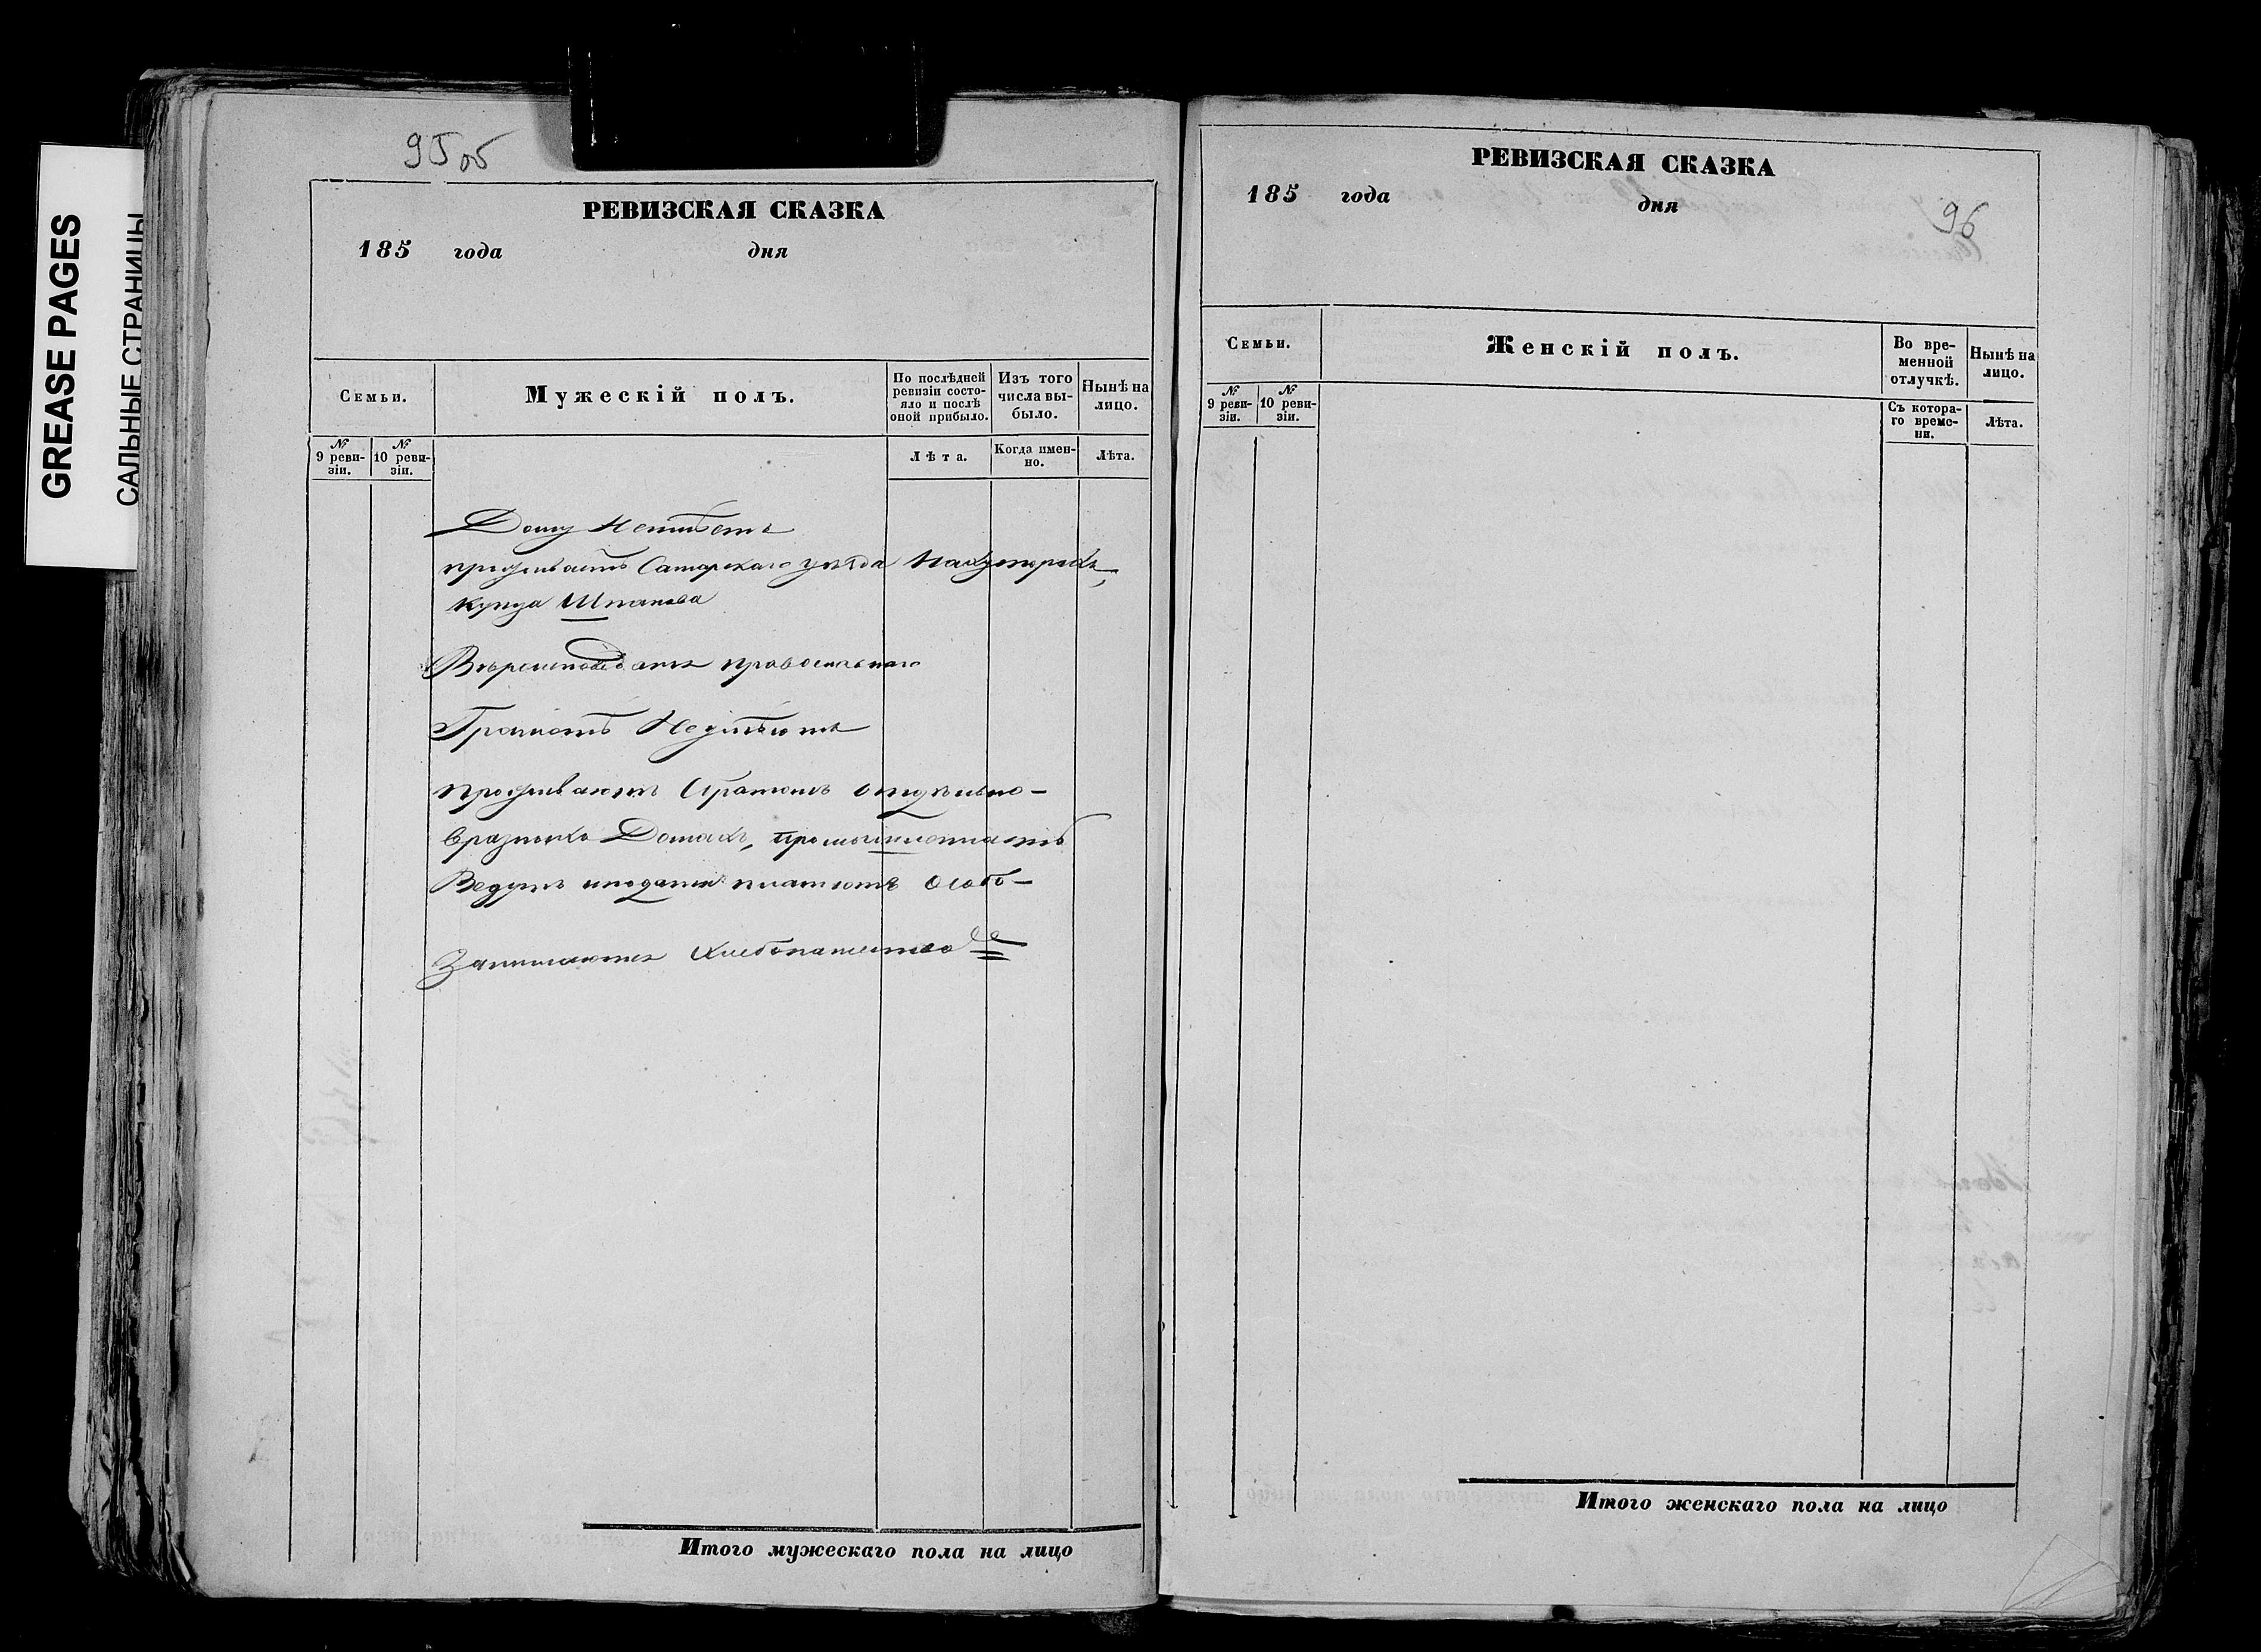 GREASE PAGES
САЛЬНЫЕ СТРАНИЦЫ
95 об
РЕВИЗСКАЯ СКАЗКА
185 года дня
Семьи.
Мужескій полъ.
По послѣдней ревизіи состояло и послѣ оной прибыло.
Изъ того числа выбыло.
Нынѣ на лицо.
№ 9 ревизіи.
№ 10 ревизіи.
Лѣта.
Когда именно.
Лѣта.
Дому Неимѣетъ
проживаетъ Самарскаго уѣзда На хуторахъ,
купца Шпанова
Вѣроисповѣданія православнаго
Грамотѣ Неумѣютъ
проживаютъ Cбратомъ отдѣльно
вразныхъ Домахъ, промышленность
Ведутъ иподати платютъ особо
Занимаются хлебопашество
РЕВИЗСКАЯ СКАЗКА
185 года дня
96
Семьи.
Женскій полъ.
Во временной отлучкѣ.
Нынѣ на лицо.
№ 9 ревизіи.
№ 10 ревизіи.
Съ котораго времени.
Лѣта.
Итого мужескаго пола на лицо
Итого женскаго пола на лицо